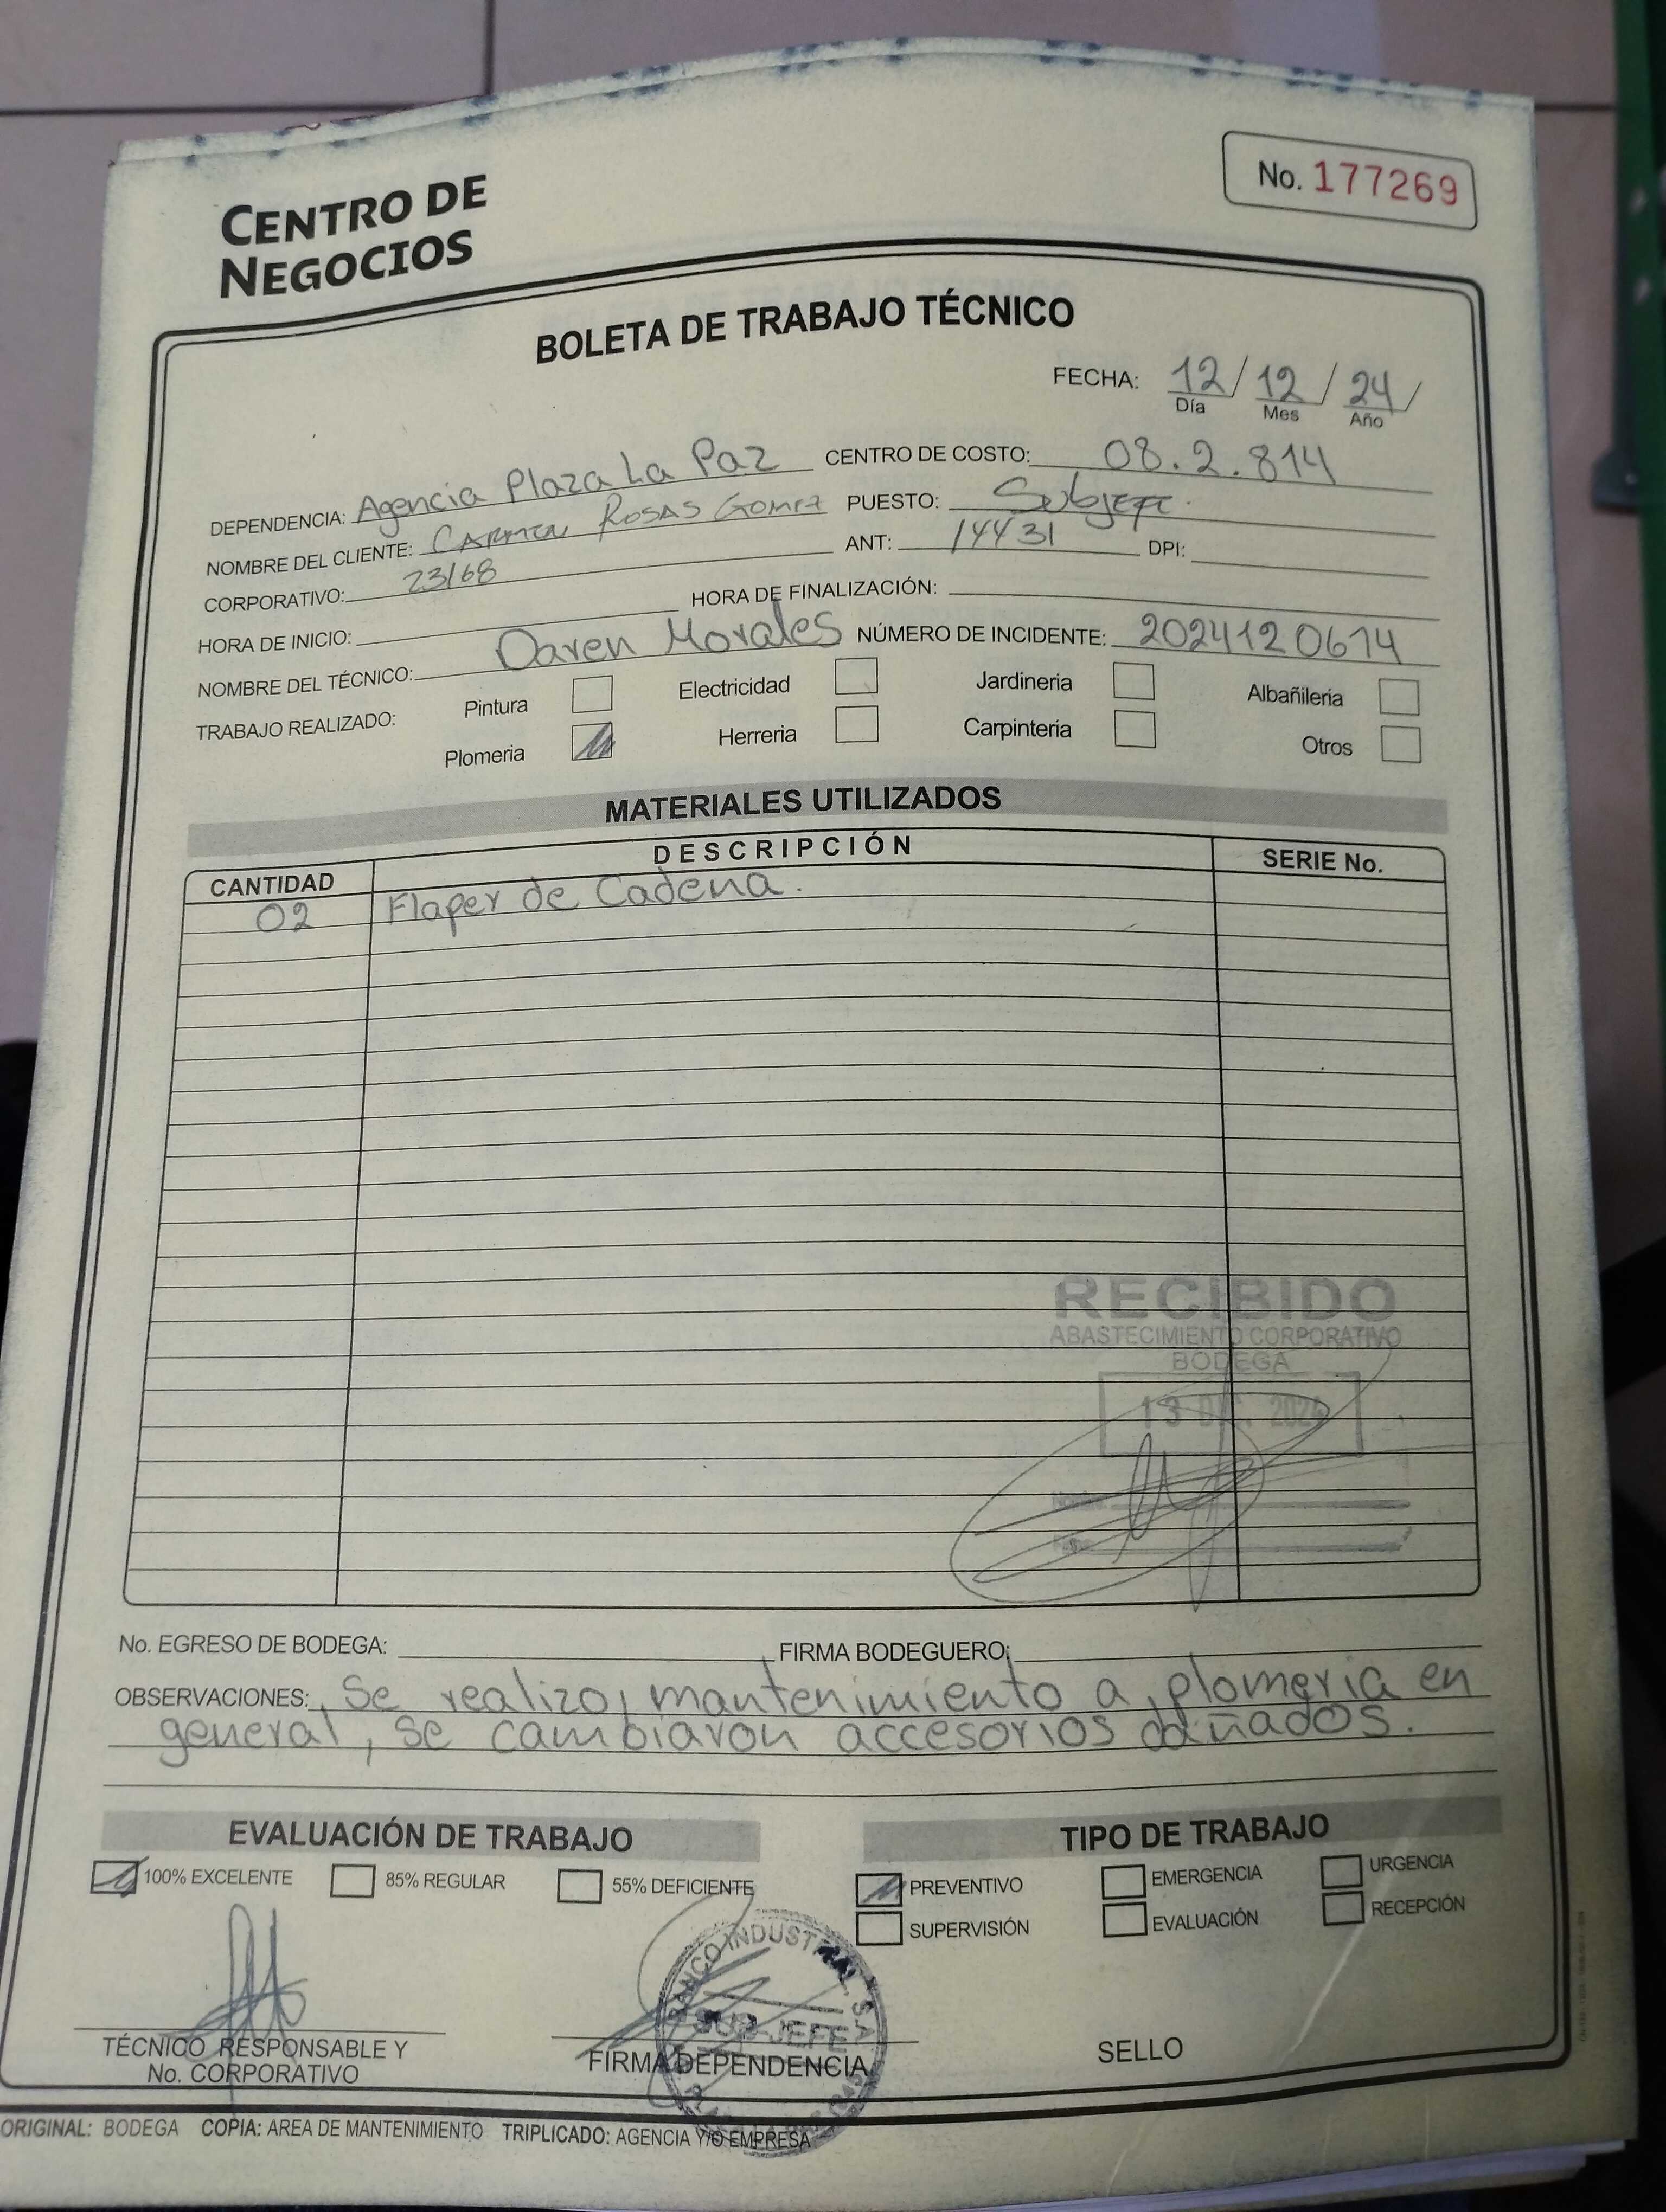 CENTRO DE
NEGOCIOS
No. 177269
BOLETA DE TRABAJO TÉCNICO
FECHA: 12/12/24/
Día Mes Año
DEPENDENCIA: Agencia Plaza La Paz CENTRO DE COSTO: 08.2.814
NOMBRE DEL CLIENTE: CARMEN ROSAS GOMEZ PUESTO: Subjefe
CORPORATIVO: 23168 ANT: 14431 DPI:
HORA DE INICIO: HORA DE FINALIZACIÓN:
NOMBRE DEL TÉCNICO: Daren Morales NÚMERO DE INCIDENTE: 2024120614
TRABAJO REALIZADO: Pintura Electricidad Jardineria Albañileria
Plomeria Herreria Carpinteria Otros
MATERIALES UTILIZADOS
CANTIDAD DESCRIPCIÓN SERIE No.
02 Flaper de Cadena.
RECIBIDO
ABASTECIMIENTO CORPORATIVO
BODEGA
13 DIC. 2024
No. EGRESO DE BODEGA: FIRMA BODEGUERO:
OBSERVACIONES: Se realizo mantenimiento a plomeria en
general, se cambiaron accesorios dañados.
EVALUACIÓN DE TRABAJO TIPO DE TRABAJO
100% EXCELENTE 85% REGULAR 55% DEFICIENTE PREVENTIVO EMERGENCIA URGENCIA
SUPERVISIÓN EVALUACIÓN RECEPCIÓN
BANCO INDUSTRIAL, S.A.
SUB-JEFE
TÉCNICO RESPONSABLE Y
No. CORPORATIVO
FIRMA DEPENDENCIA
SELLO
ORIGINAL: BODEGA COPIA: AREA DE MANTENIMIENTO TRIPLICADO: AGENCIA Y/O EMPRESA